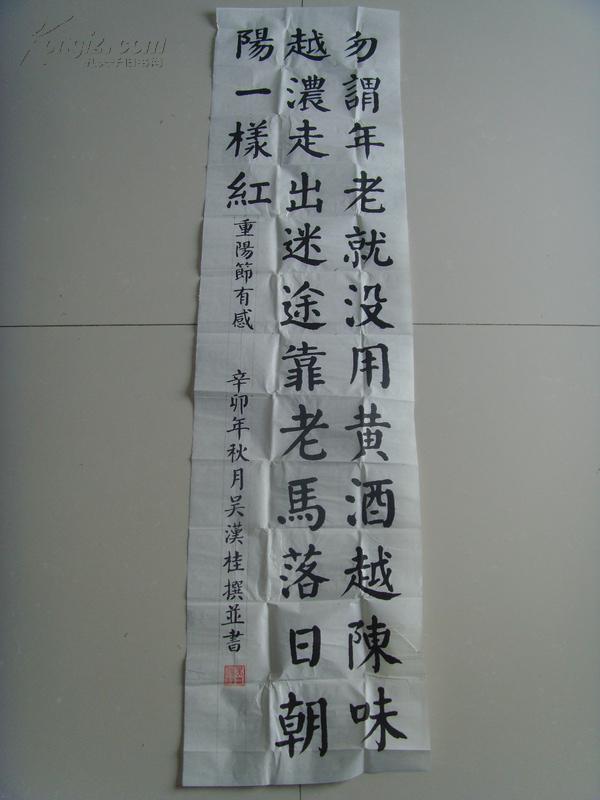 勿謂年老就没用黄酒越陳味
越濃走出迷途靠老馬落日朝
陽一樣紅
重陽節有感
辛卯年秋月吴漢桂撰並書